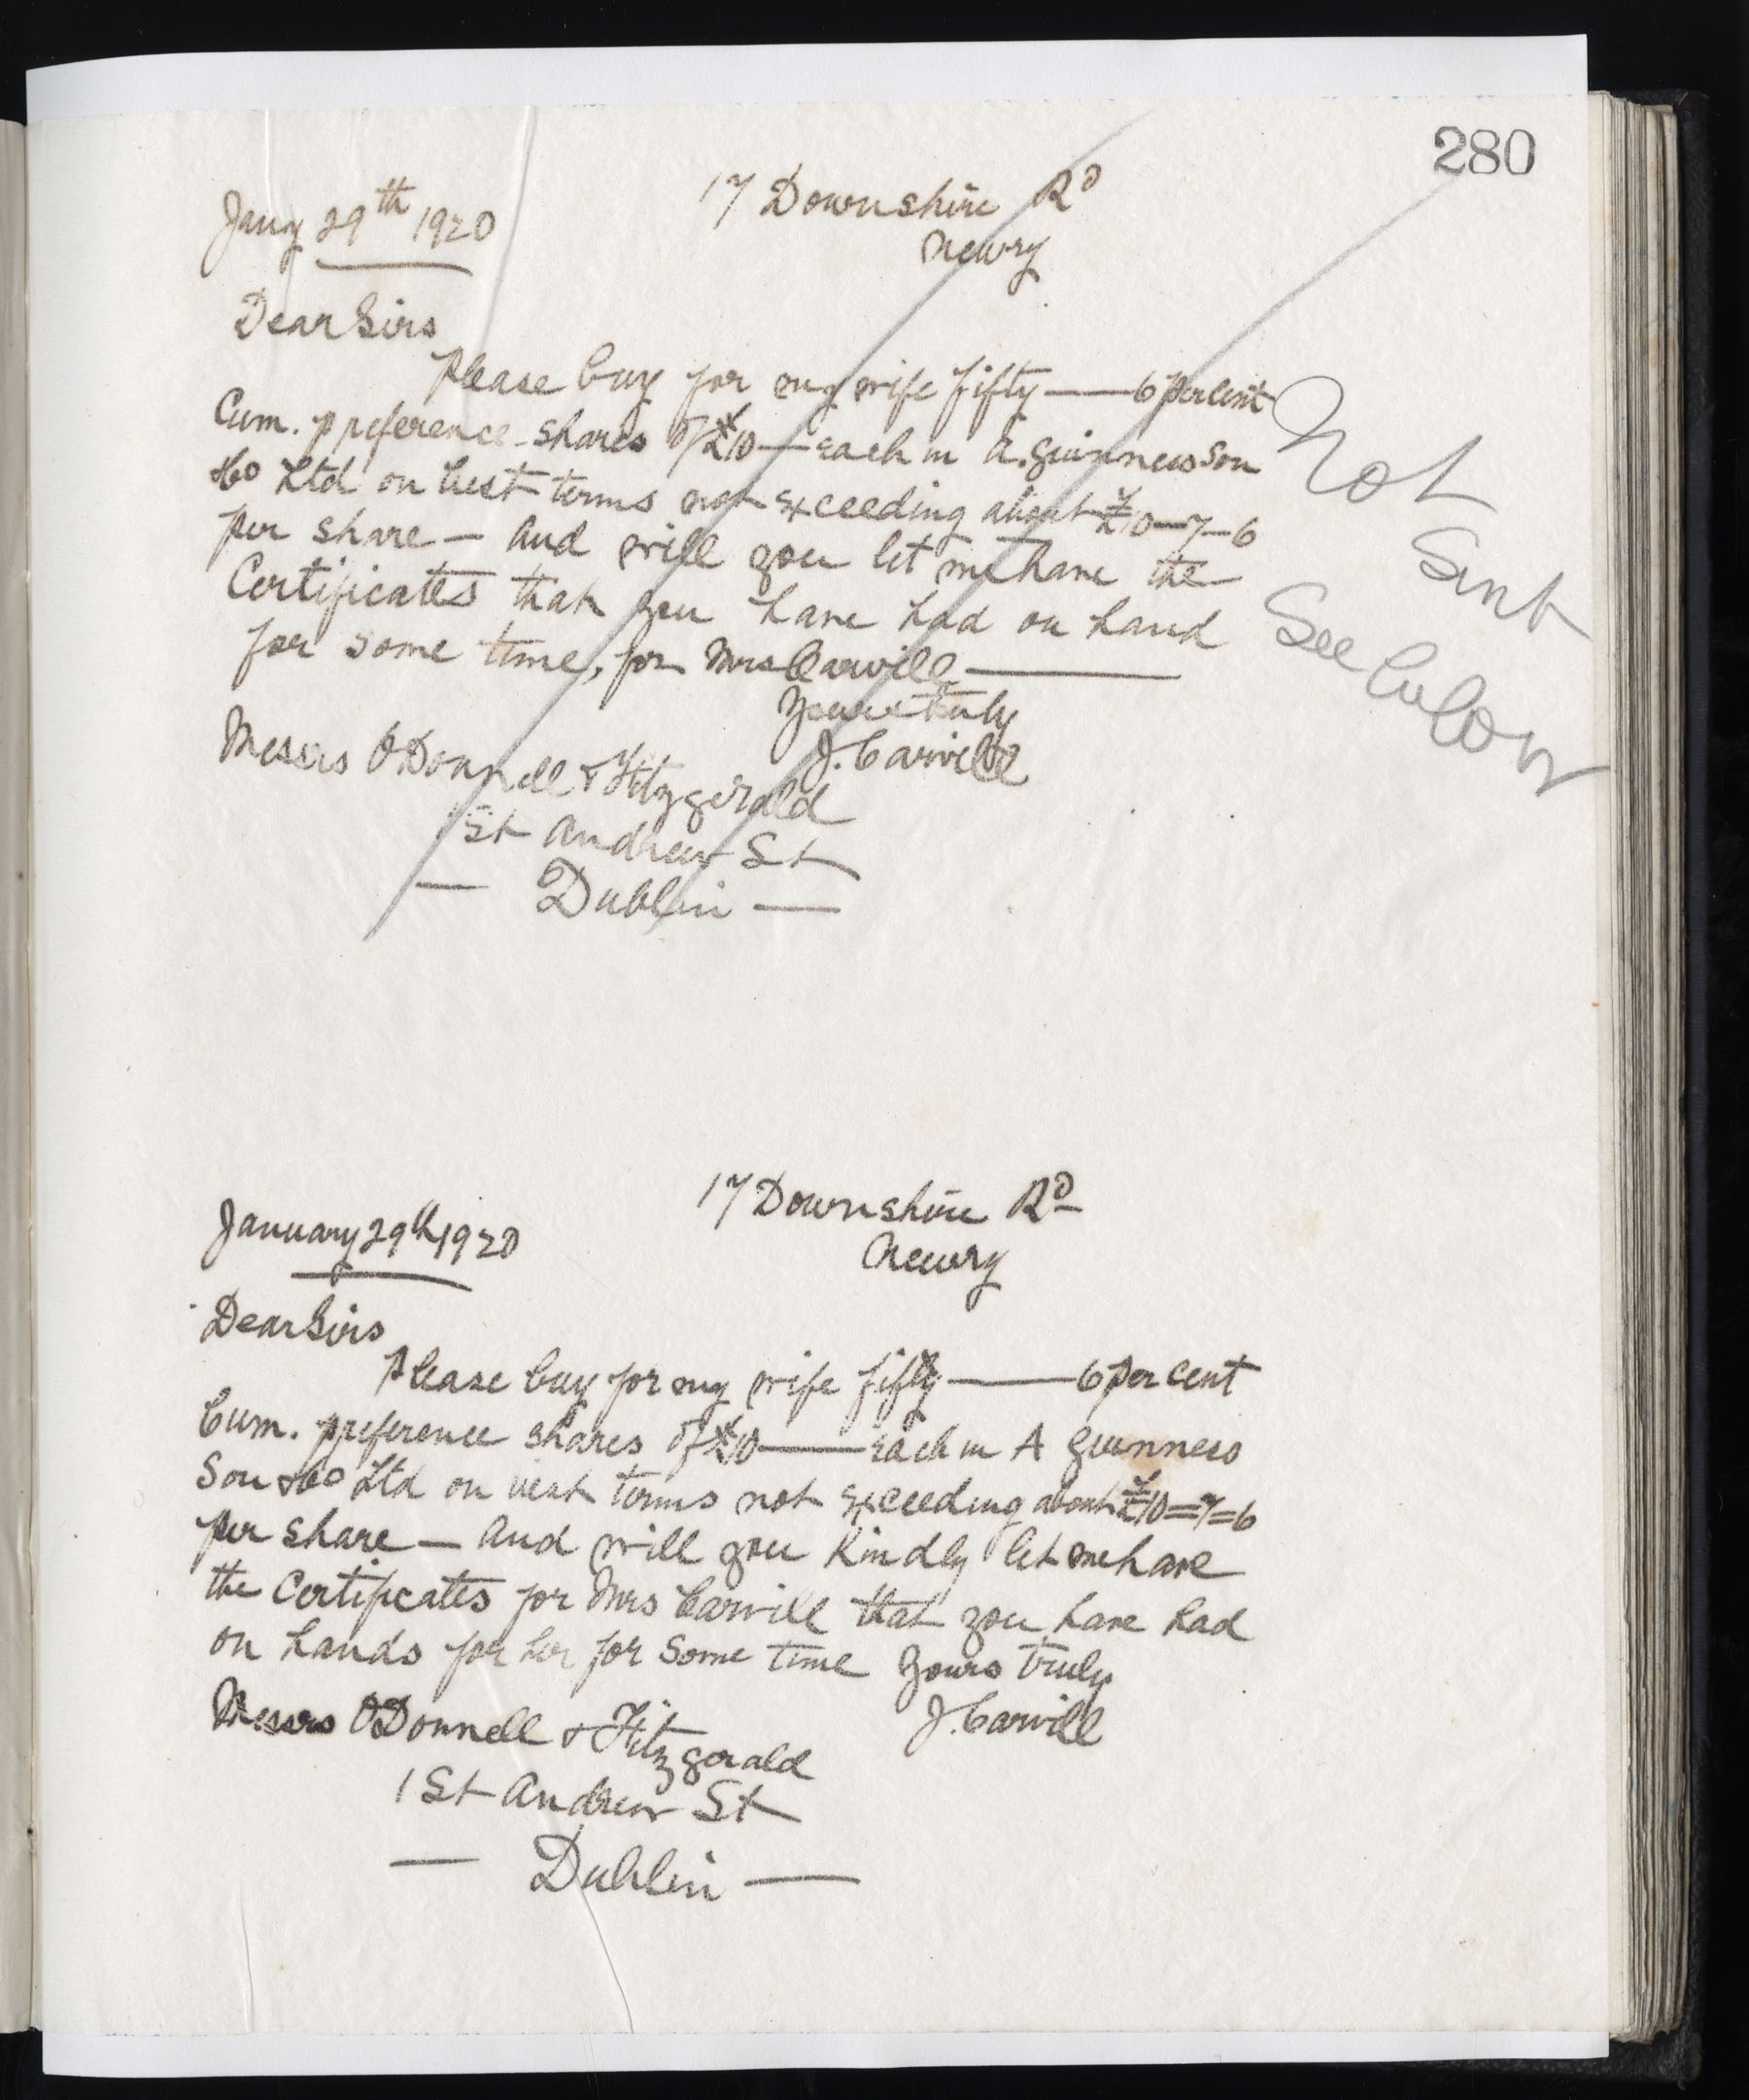 280
17 Downshire Rd
Jany 29th 1920
Newry
Dear Sirs
Please buy for my wife fifty — 6 per Cent
Cum. preference shares of £10 — each in A. Guinness Son
&Co Ltd on best terms not exceeding about £10-7-6
per share — and will you let me have the
Certificates that you have had on hand
for some time, for Mrs Carvill —
Yours truly
J. Carvill
Messrs O'Donnell & Fitzgerald
1 St Andrew St
— Dublin —
Not
Sent
See below
17 Downshire Rd
January 29th 1920
Newry
Dear Sirs
Please buy for my wife fifty — 6 per cent
Cum. preference shares of £10 — each in A Guinness
Son &Co Ltd on best terms not exceeding about £10=7=6
per share — and will you kindly let me have
the Certificates for Mrs Carvill that you have had
on hands for her for some time Yours truly
J. Carvill
Messrs O'Donnell & Fitzgerald
1 St Andrew St
— Dublin —